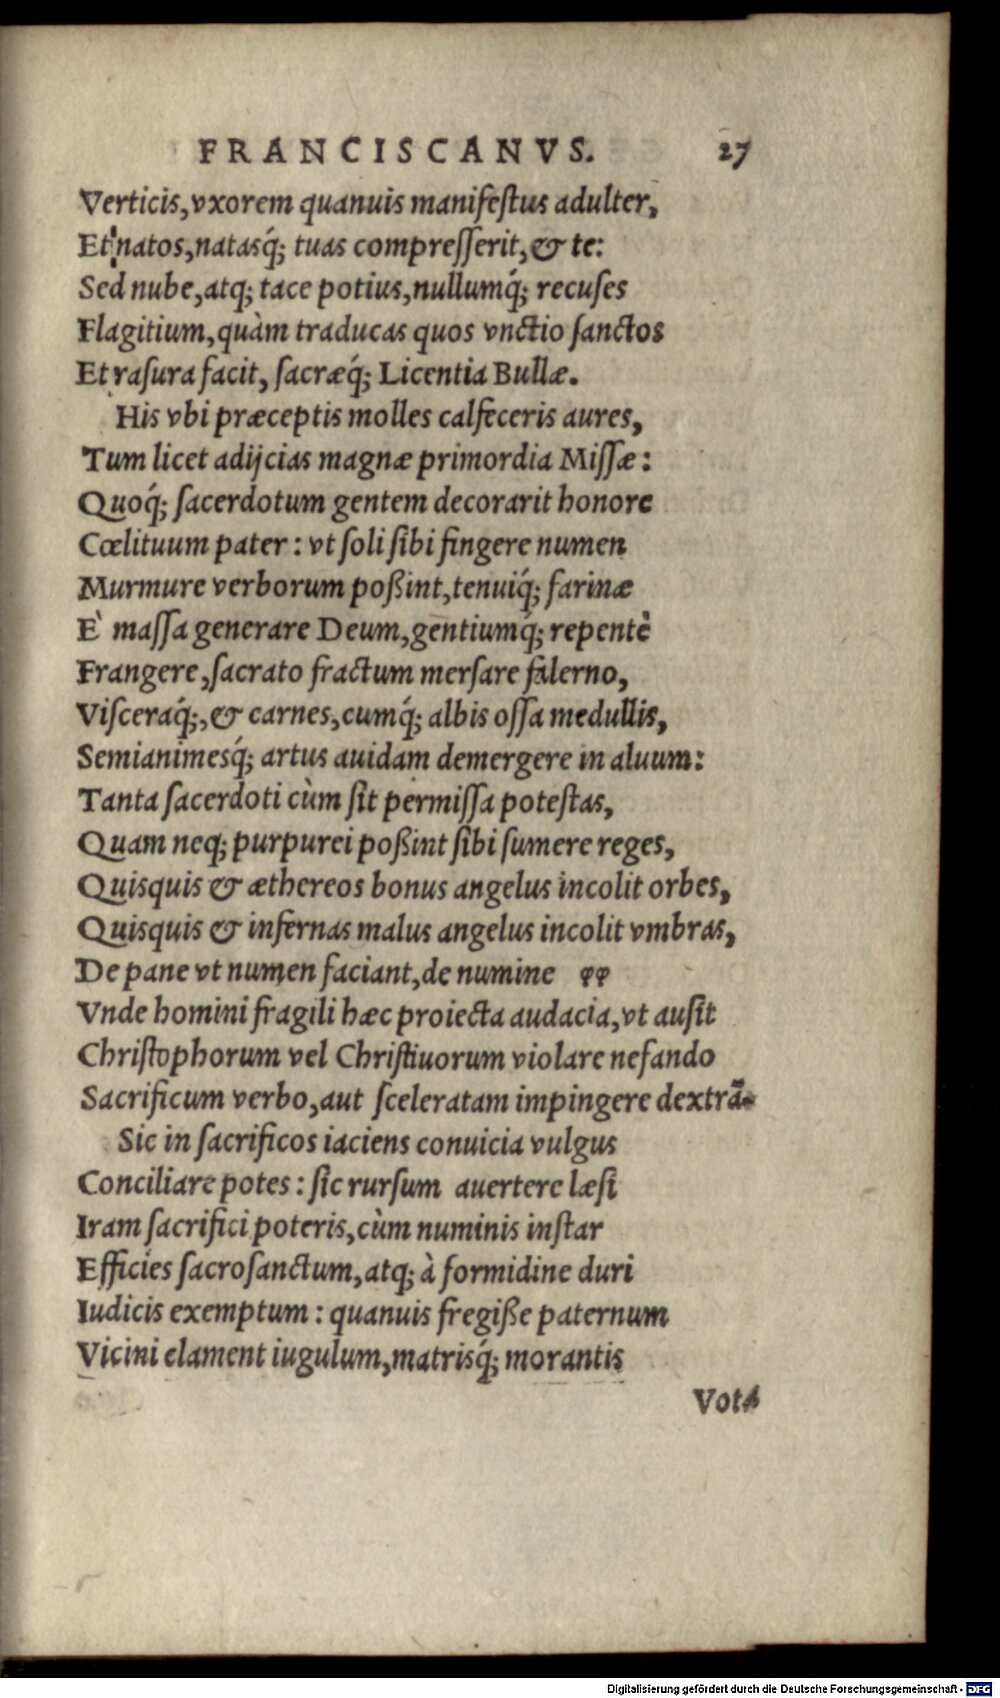 FRANCISCANVS. 27
Verticis, vxorem quanuis manifeſtus adulter,
Et natos, natasq́; tuas compreſſerit, & te:
Sed nube, atq; tace potius, nullumq́; recuſes
Flagitium, quàm traducas quos vnctio ſanctos
Et raſura facit, ſacræq́; Licentia Bullæ.
His vbi præceptis molles calfeceris aures,
Tum licet adijcias magnæ primordia Miſſæ:
Quoq́; ſacerdotum gentem decorarit honore
Cœlituum pater: vt ſoli ſibi fingere numen
Murmure verborum poßint, tenuiq́; farinæ
È maſſa generare Deum, gentiumq́; repentè
Frangere, ſacrato fractum merſare falerno,
Viſceraq́;, & carnes, cumq́; albis oſſa medullis,
Semianimesq́; artus auidam demergere in aluum:
Tanta ſacerdoti cùm ſit permiſſa poteſtas,
Quam neq; purpurei poßint ſibi ſumere reges,
Quisquis & æthereos bonus angelus incolit orbes,
Quisquis & infernas malus angelus incolit vmbras,
De pane vt numen faciant, de numine
Vnde homini fragili hæc proiecta audacia, vt auſit
Chriſtophorum vel Chriſtiuorum violare nefando
Sacrificum verbo, aut ſceleratam impingere dextrā.
Sic in ſacrificos iaciens conuicia vulgus
Conciliare potes: ſic rurſum auertere læſi
Iram ſacrifici poteris, cùm numinis inſtar
Efficies ſacroſanctum, atq; à formidine duri
Iudicis exemptum: quanuis fregiße paternum
Vicini clament iugulum, matrisq́; morantis
Vota
Digitalisierung gefördert durch die Deutsche Forschungsgemeinschaft - DFG